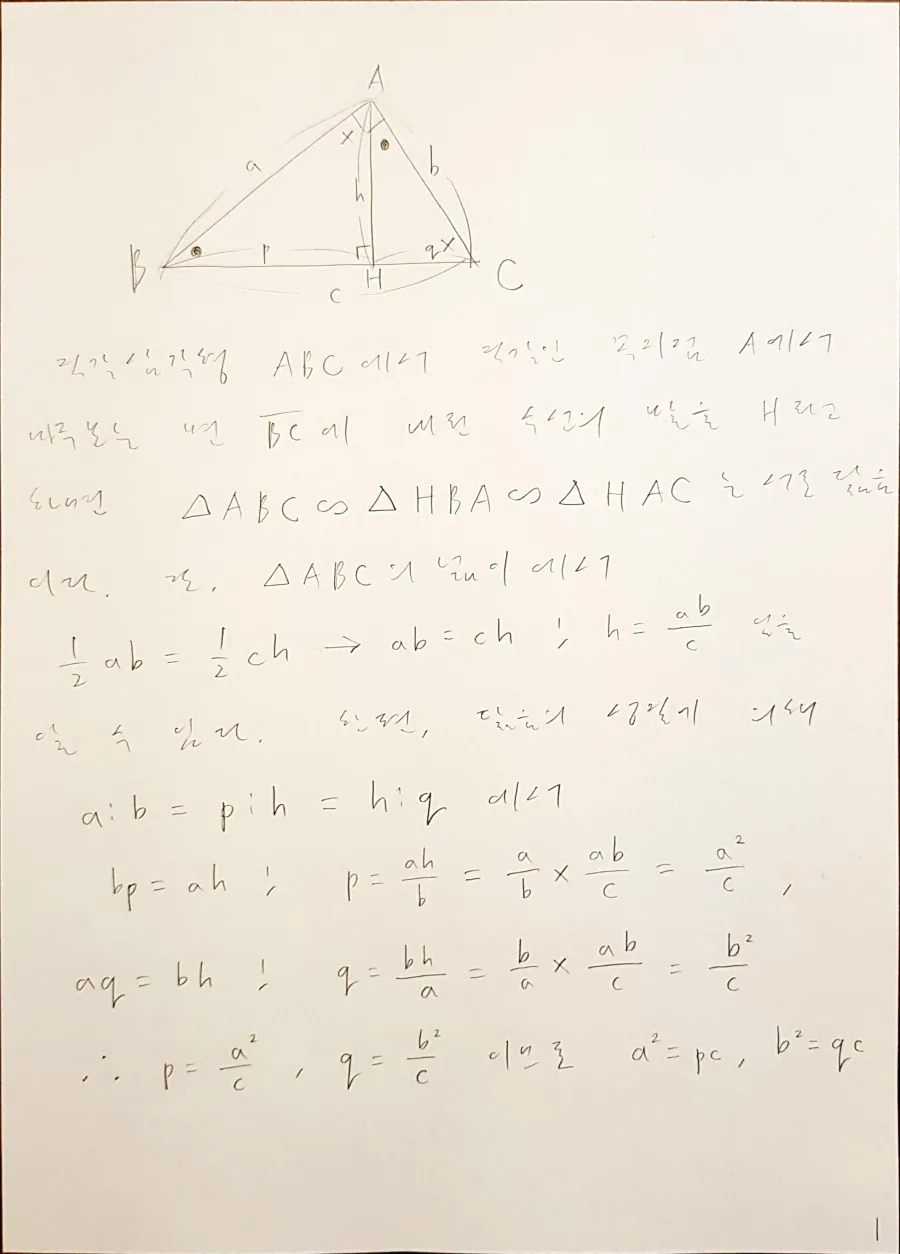 A
x
a
h
b
p
q
x
B
H
C
c
직각삼각형 ABC에서 직각인 꼭지점 A에서
마주보는 변 \overline{BC}에 내린 수선의 발을 H라고
하면 △ABC∽△HBA∽△HAC는 서로 닮음
이다. 또, △ABC의 넓이에서
\frac{1}{2}ab = \frac{1}{2}ch → ab = ch ; h = \frac{ab}{c} 임을
알 수 있다. 한편, 닮음의 성질에 의해
a:b = p:h = h:q 에서
bp = ah ; p = \frac{ah}{b} = \frac{a}{b} × \frac{ab}{c} = \frac{a²}{c} ,
aq = bh ; q = \frac{bh}{a} = \frac{b}{a} × \frac{ab}{c} = \frac{b²}{c}
∴ p = \frac{a²}{c} , q = \frac{b²}{c} 이므로 a² = pc, b² = qc
1